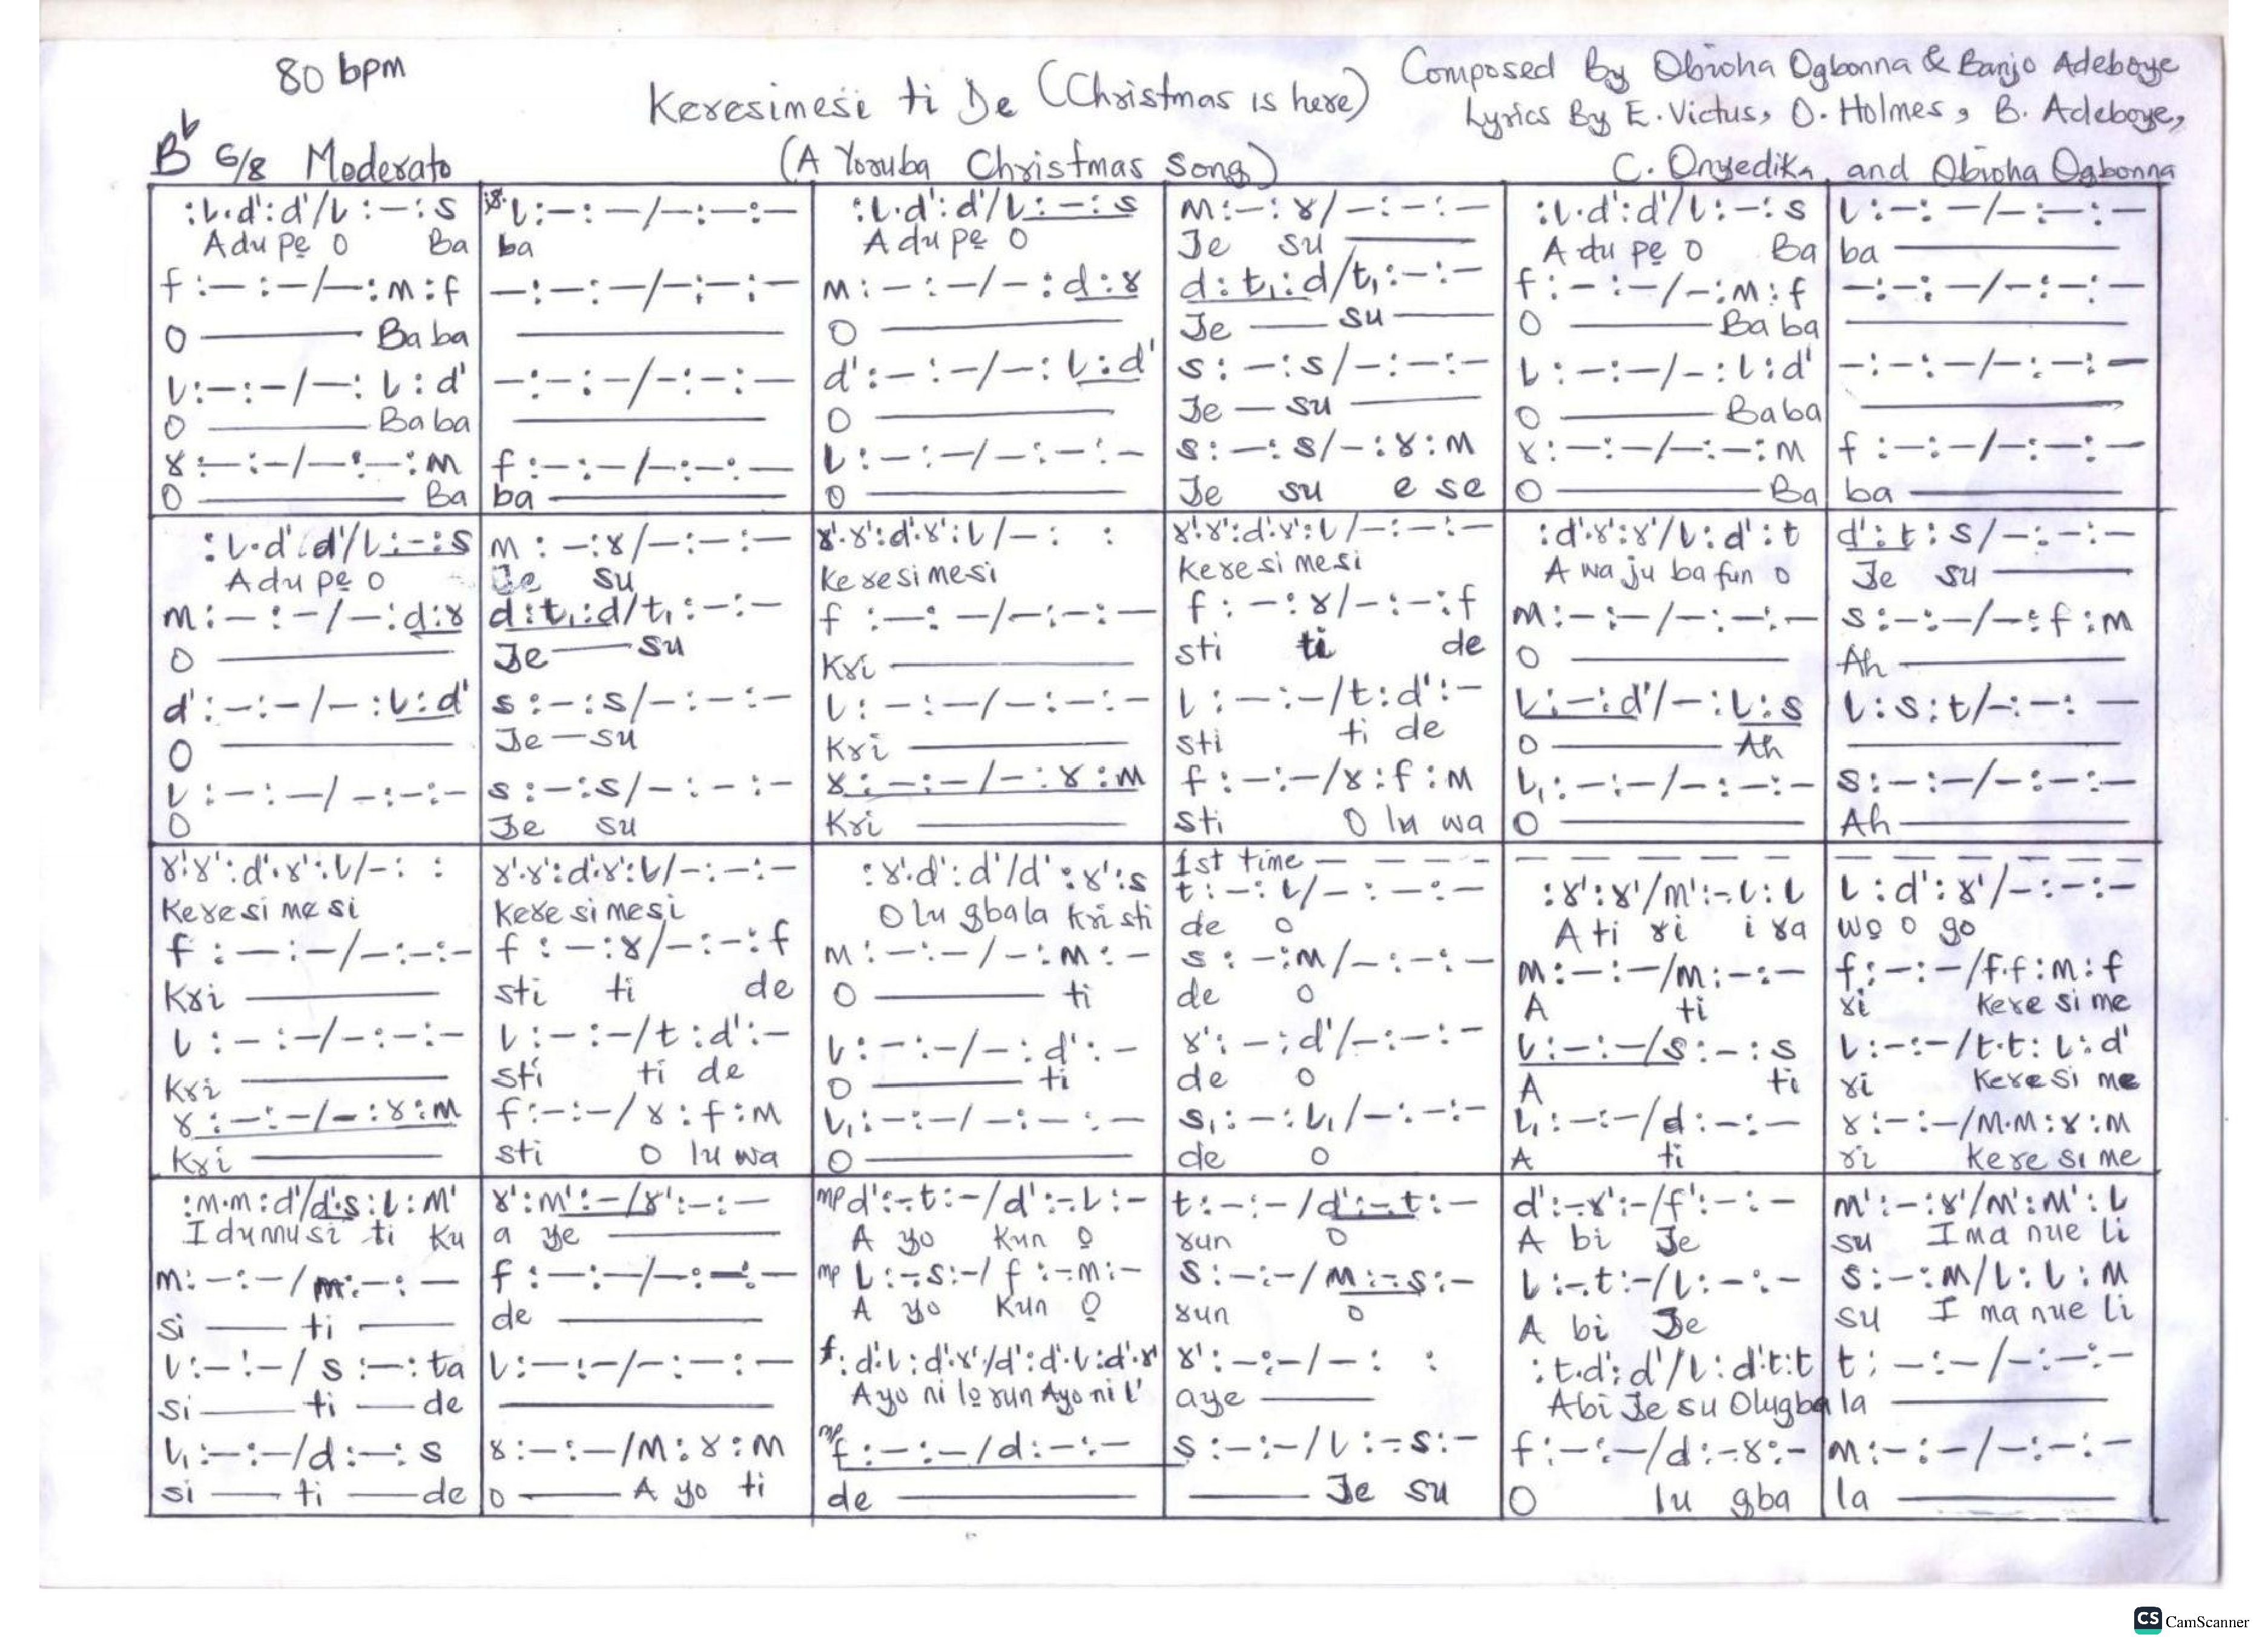 80 bpm
Keresimesi ti De (Christmas is here)
Composed By Obioha Ogbonna & Banjo Adeboye
Lyrics By E. Victus, O. Holmes, B. Adeboye,
B♭ 6/8 Moderato
(A Yoruba Christmas Song)
C. Onyedika and Obioha Ogbonna
:l.d':d'/l:—:s l:—:—/—:—:— :l.d':d'/l:—:s m:—:r/—:—:— :l.d':d'/l:—:s l:—:—/—:—:—
A du pẹ O Ba ba A du pẹ O Je su A du pẹ O Ba ba
f:—:—/—:m:f —:—:—/—:—:— m:—:—/—:d:r d:t₁:d/t₁:—:— f:—:—/—:m:f —:—:—/—:—:—
O Ba ba O Je su O Ba ba
l:—:—/—:l:d' —:—:—/—:—:— d':—:—/—:l:d' s:—:s/—:—:— l:—:—/—:l:d' —:—:—/—:—:—
O Ba ba O Je su O Ba ba
r:—:—/—:—:m f:—:—/—:—:— l:—:—/—:—:— s:—:s/—:r:m r:—:—/—:—:m f:—:—/—:—:—
O Ba ba O Je su e se O Ba ba
:l.d':d'/l:—:s m:—:r/—:—:— r'.r':d'.r':l/—: : r'.r':d'.r':l/—:—:— :d'.r':r'/l:d':t d':t:s/—:—:—
A du pẹ O Je su Keresimesi Keresimesi A wa ju ba fun o Je su
m:—:—/—:d:r d:t₁:d/t₁:—:— f:—:—/—:—:— f:—:r/—:—:f m:—:—/—:—:— s:—:—/—:f:m
O Je su Kri sti ti de O Ah
d':—:—/—:l:d' s:—:s/—:—:— l:—:—/—:—:— l:—:—/t:d':— l:—:d'/—:l:s l:s:t/—:—:—
O Je su Kri sti ti de O Ah
l:—:—/—:—:— s:—:s/—:—:— r:—:—/—:r:m f:—:—/r:f:m l₁:—:—/—:—:— s:—:—/—:—:—
O Je su Kri sti O lu wa O Ah
1st time
r'.r':d'.r':l/—: : r'.r':d'.r':l/—:—:— :r'.d':d'/d':r':s t:—:l/—:—:— :r':r'/m':-.l:l l:d':r'/—:—:—
Keresimesi Keresimesi O lu gbala Kristi de O A ti ri i ra wọ o go
f:—:—/—:—:— f:—:r/—:—:f m:—:—/—:m:— s:—:m/—:—:— m:—:—/m:—:— f:—:—/f.f:m:f
Kri sti ti de O ti de O A ti ri Kere si me
l:—:—/—:—:— l:—:—/t:d':— l:—:—/—:d':— r':—:d'/—:—:— l:—:—/s:—:s l:—:—/t.t:l:d'
Kri sti ti de O ti de O A ti ri Kere si me
r:—:—/—:r:m f:—:—/r:f:m l₁:—:—/—:—:— s₁:—:l₁/—:—:— l₁:—:—/d:—:— r:—:—/m.m:r:m
Kri sti O lu wa O de O A ti ri Kere si me
:m.m:d'/d'.s:l:m' r':m':—/r':—:— mp d':-.t:—/d':-.l:— t:—:—/d':-.t:— d':-.r':—/f':—:— m':—:r'/m':m':l
I dunnu si ti Ku a ye A yo Kun O run O A bi Je su I ma nue li
m:—:—/m:—:— f:—:—/—:—:— mp l:-.s:—/f:-.m:— s:—:—/m:-.s:— l:-.t:—/l:—:— s:—:m/l:l:m
si ti de A yo Kun O run O A bi Je su I ma nue li
l:—:—/s:—:ta l:—:—/—:—:— f:d'.l:d'.r'/d':d'.l:d'.r' r':—:—/—: : :t.d':d'/l:d't:t t:—:—/—:—:—
si ti de Ayo ni lọ run Ayo ni l' aye Abi Je su Olugba la
l₁:—:—/d:—:s r:—:—/m:r:m mp f:—:—/d:—:— s:—:—/l:-.s:— f:—:—/d:-.r:— m:—:—/—:—:—
si ti de O A yo ti de Je su O lu gba la
CS CamScanner